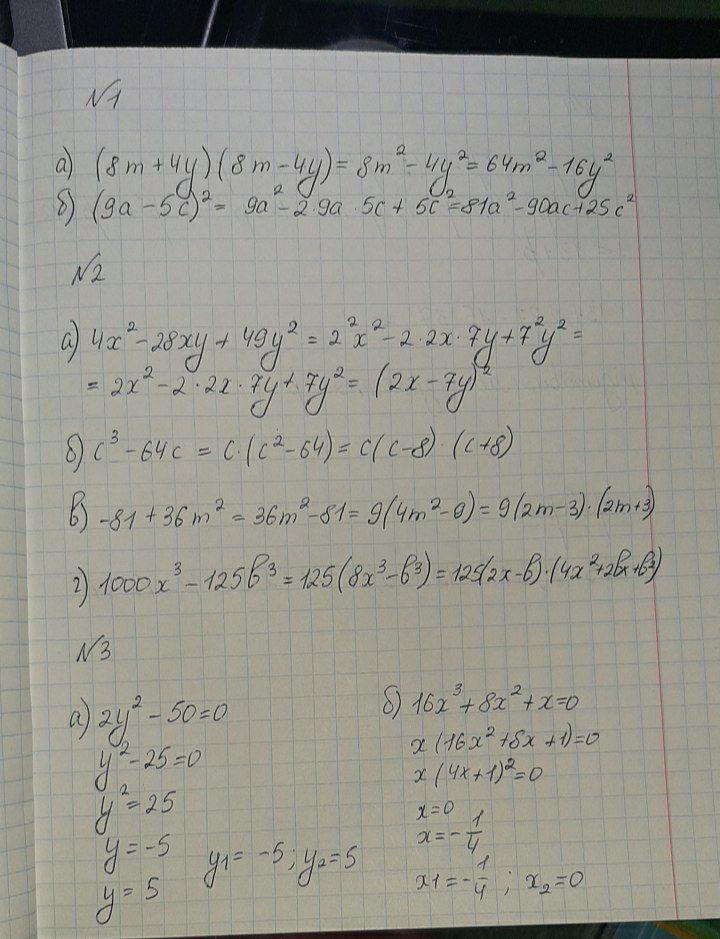 №1
а) (8m + 4y)(8m - 4y) = 8m² - 4y² = 64m² - 16y²
б) (9a - 5c)² = 9a² - 2·9a·5c + 5c² = 81a² - 90ac + 25c²
№2
а) 4x² - 28xy + 49y² = 2²x² - 2·2x·7y + 7²y² =
= 2x² - 2·2x·7y + 7y² = (2x - 7y)²
б) c³ - 64c = c·(c² - 64) = c(c - 8)·(c + 8)
в) -81 + 36m² = 36m² - 81 = 9(4m² - 9) = 9(2m - 3)·(2m + 3)
г) 1000x³ - 125b³ = 125(8x³ - b³) = 125(2x - b)·(4x² + 2bx + b²)
№3
а) 2y² - 50 = 0
y² - 25 = 0
y² = 25
y = -5
y = 5
y1 = -5; y2 = 5
б) 16x³ + 8x² + x = 0
x(16x² + 8x + 1) = 0
x(4x + 1)² = 0
x = 0
x = -1/4
x1 = -1/4; x2 = 0